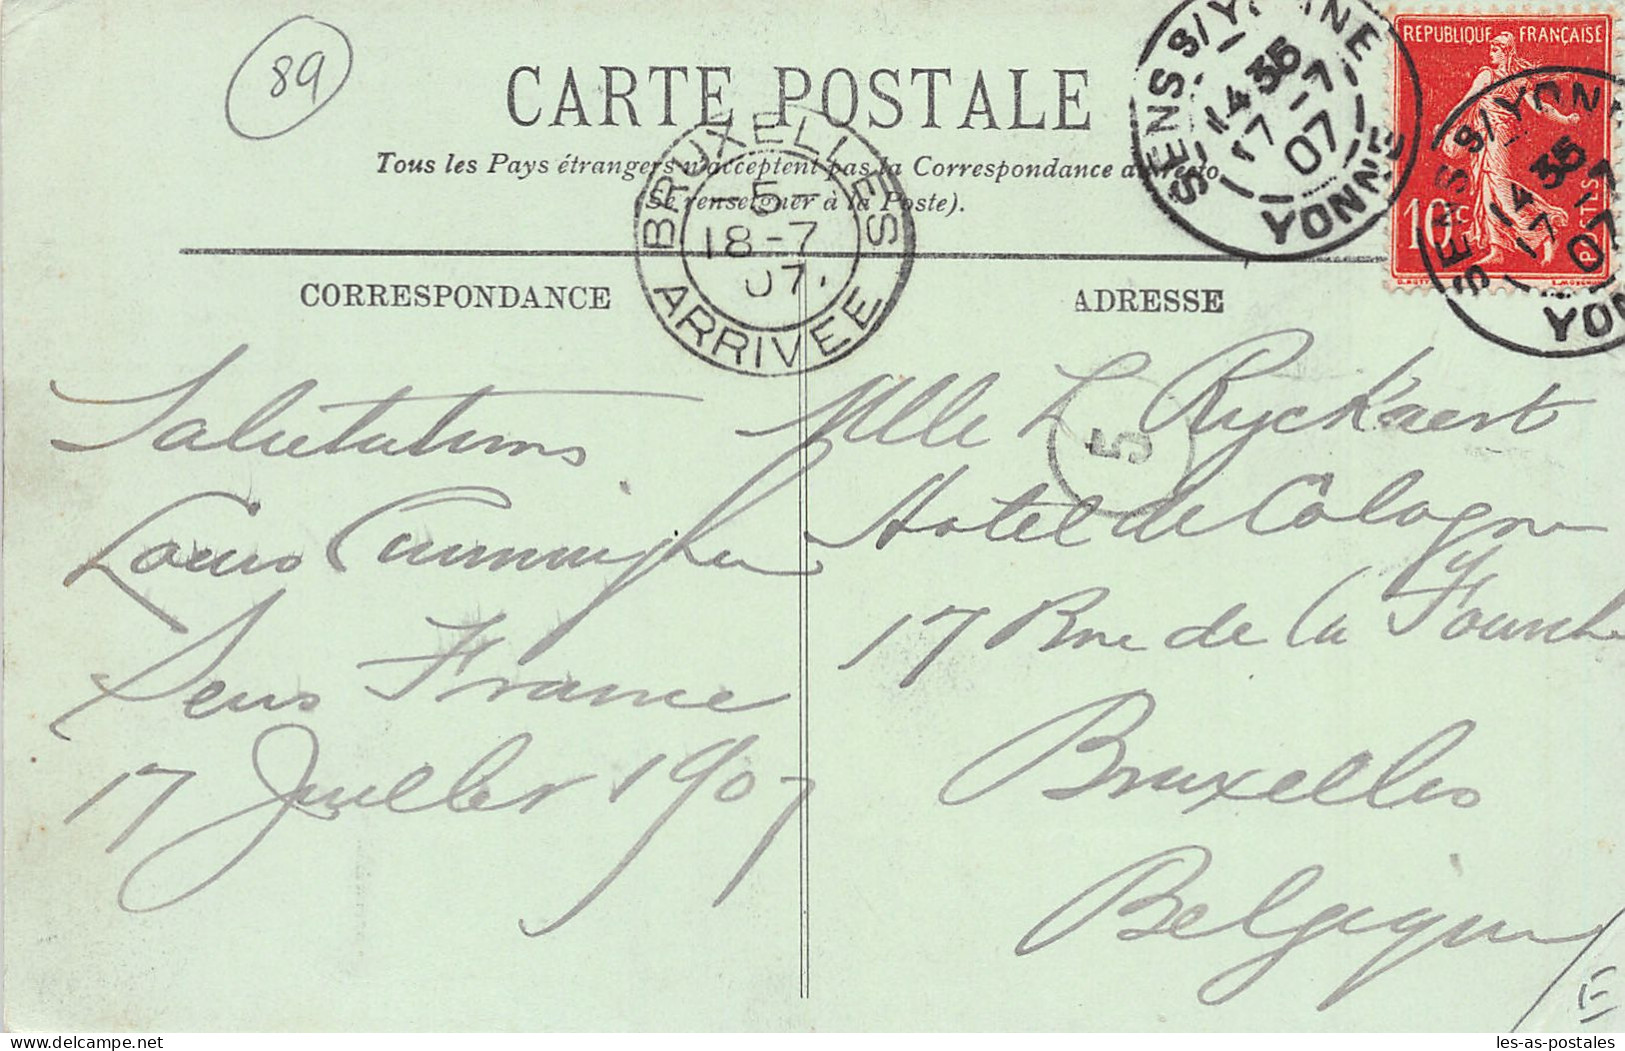 89
CARTE POSTALE
Tous les Pays étrangers n'acceptent pas la Correspondance au recto
(Se renseigner à la Poste).
SENS S/YONNE
14 35
17-7
07
YONNE
REPUBLIQUE FRANÇAISE
10c
POSTES
SENS S/YONNE
14 35
17-7
07
BRUXELLES
5
18-7
07.
ARRIVEE
CORRESPONDANCE
ADRESSE
Salutations
Louis
Sens France
17 Juillet 1907
Mlle L Ryckaert
5
Hotel de Cologne
17 Rue de la Fourche
Bruxelles
Belgique
E
les-as-postales